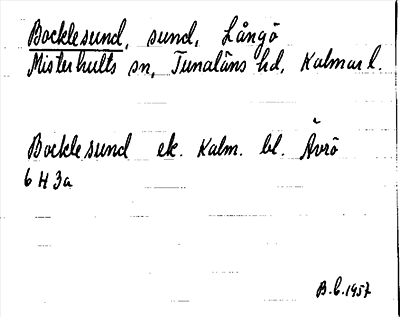 Bocklesund, sund, Långö
Misterhults sn, Tunaläns hd, Kalmar l.
Bocklesund ek. Kalm. bl. Ävrö
6 H 3a
B.C. 1957